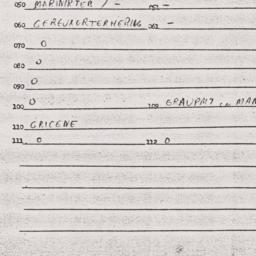 050 MARINIRTER / - 051 -
060 GEREUKERTERHERING 061 -
070 0
080 0
090 0
100 0 109 GRAUPMT in MAR
110 GRICENE
111 0 112 0